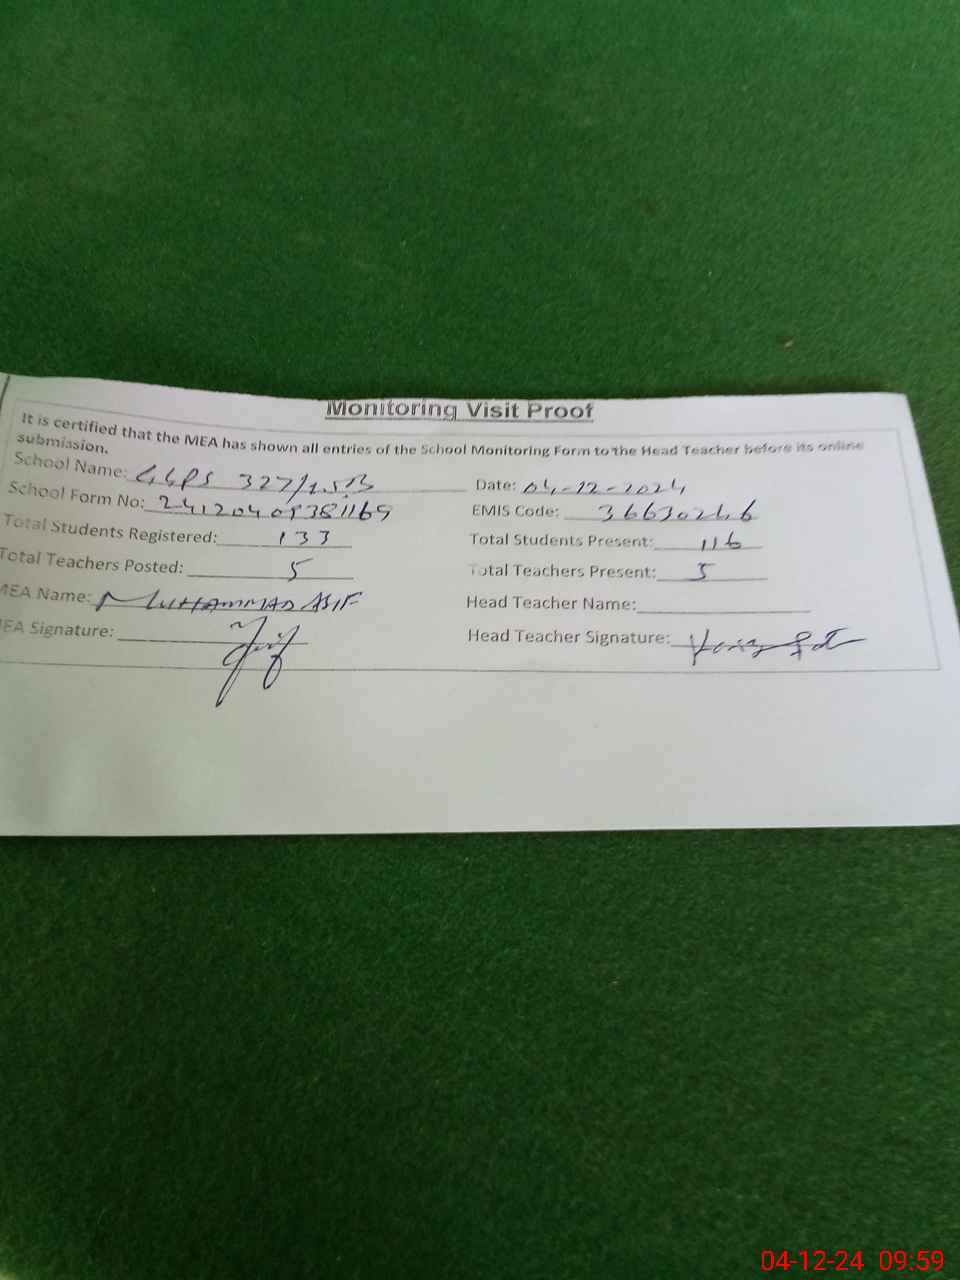 Monitoring Visit Proof
It is certified that the MEA has shown all entries of the School Monitoring Form to the Head Teacher before its online
submission.
School Name: GGPS 327/ Date: 04-12-2024
School Form No: EMIS Code: 36630246
Total Students Registered: 133 Total Students Present: 116
Total Teachers Posted: 5 Total Teachers Present: 5
MEA Name: MUHAMMAD ASIF Head Teacher Name:
MEA Signature: Head Teacher Signature:
04-12-24 09:59